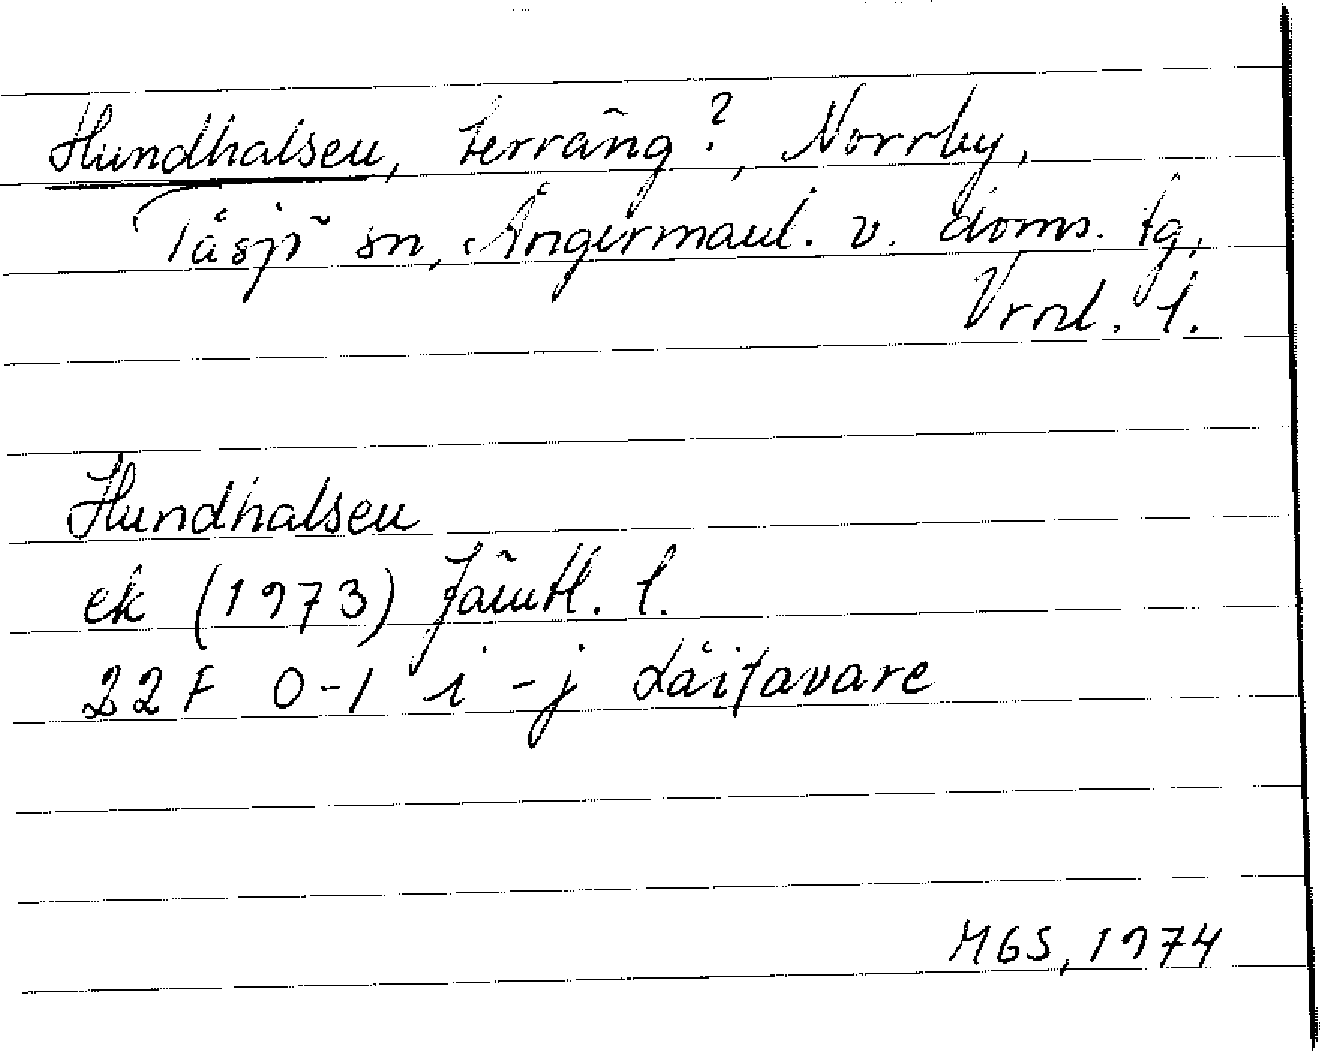 Hundhalsen, terräng?, Norrby,
Tåsjö sn, Ångermanl. v. doms. tg,
Vrnl. l.
Hundhalsen
ek (1973) Jämtl. l.
22F 0-1 i-j Dåitavare
MGS, 1974